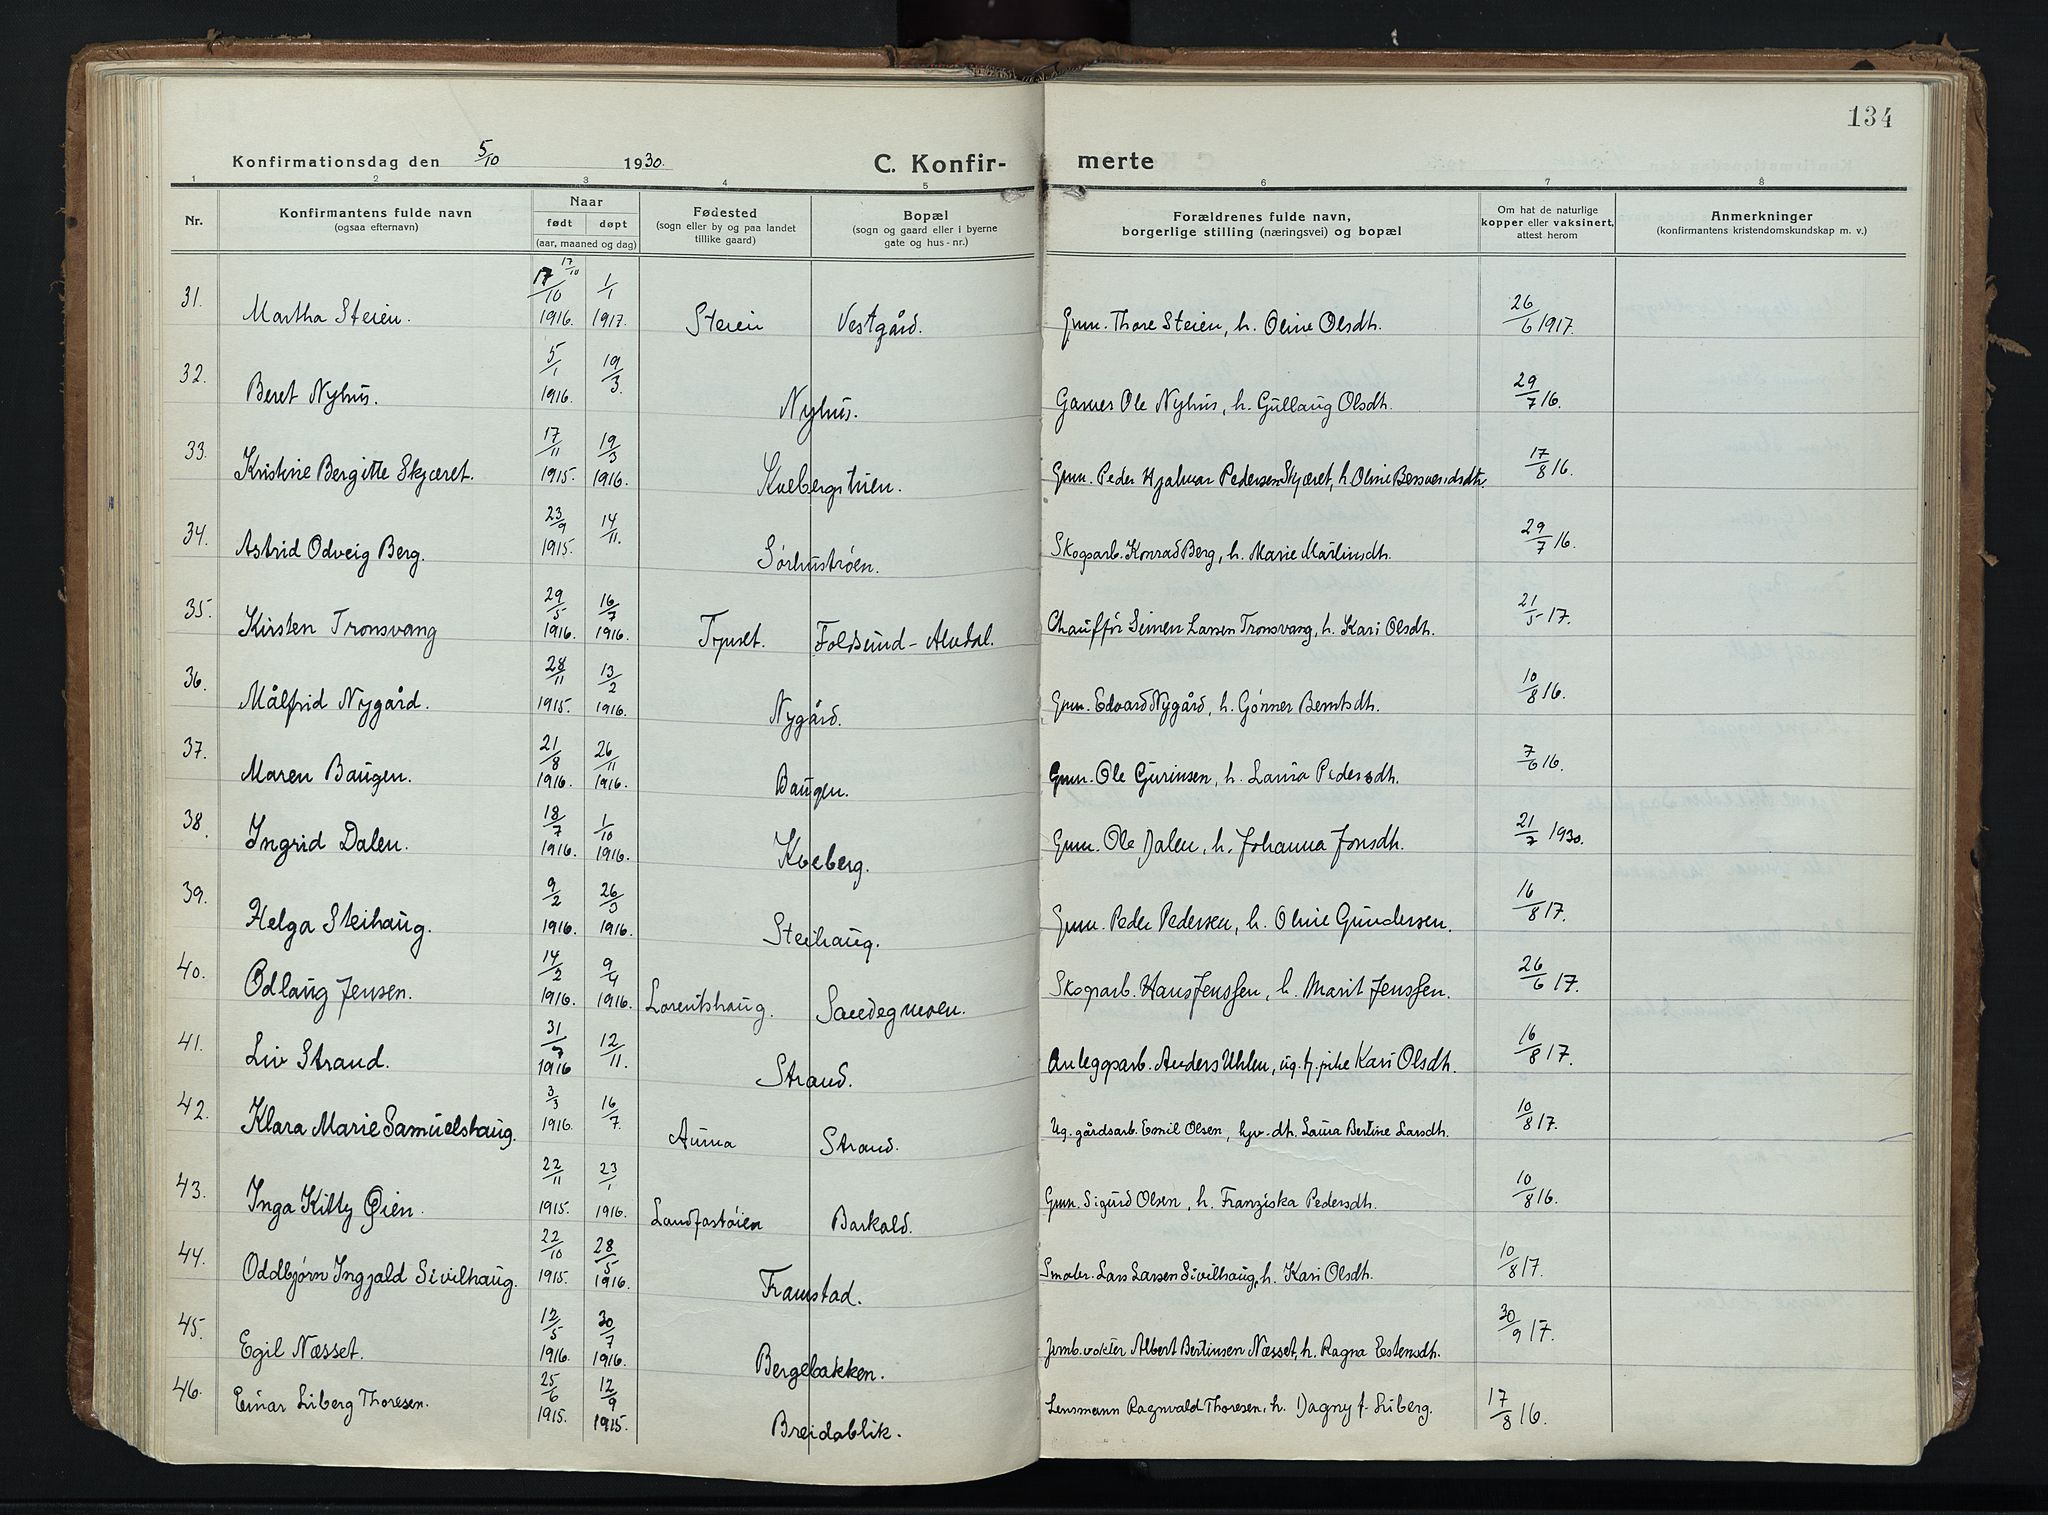 134
Konfirmationsdag den 5/10 1930. C. Konfir- merte
1 2 3 4 5 6 7 8
Nr. Konfirmantens fulde navn (ogsaa efternavn) Naar født døpt (aar, maaned og dag) Fødested (sogn eller by og paa landet tillike gaard) Bopæl (sogn og gaard eller i byerne gate og hus-nr.) Forældrenes fulde navn, borgerlige stilling (næringsvei) og bopæl Om hat de naturlige kopper eller vaksinert, attest herom Anmerkninger (konfirmantens kristendomskundskap m. v.)
31. Martha Steien. 17/10 17/10 1916. 1/1 1917. Steien Vestgård. Gmn. Thore Steien, h. Oline Olsdh. 26/6 1917.
32. Beret Nyhus. 5/1 1916. 19/3. Nyhus. Ole Nyhus, h. Gullaug Olsdh. 29/7 16.
33. Kristine Bergitte Skjæret. 17/11 1915. 19/3 1916. Kvebergstrien. Gmn. Peder Hjalmar Pedersen Skjæret, h. Oline 17/8 16.
34. Astrid Odveig Berg. 23/9 1915. 14/11. Sørhustrøen. Skogsarb. Konrad Berg, h. Marie Martinsdh. 29/7 16.
35. Kirsten Tronsvang 29/5 1916. 16/7 1916. Tynset. Foldsund - Alvdal. Chauffør Simen Larsen Tronsvang, h. Kari Olsdh. 21/5 17.
36. Målfrid Nygård. 28/11 1915. 13/2 1916. Nygård. Gmn. Edvard Nygård, h. Gønner Berntsdh. 10/8 16.
37. Maren Baugen. 21/8 1916. 26/11 1916. Baugen. Gmn. Ole Gurinsen, h. Laura Pedersdh. 7/6 16.
38. Ingrid Dalen. 18/7 1916. 1/10 1916. Kveberg. Gmn. Ole Dalen, h. Johanna Jonsdh. 21/7 1930.
39. Helga Steihaug. 9/2 1916. 26/3 1916. Steihaug. Gmn. Peder Pedersen, h. Oline Gundersen. 16/8 17.
40. Odlaug Jensen. 14/2 1916. 9/4 1916. Lorentshaug. Sandegmoen. Skogsarb. Hans Jenssen, h. Marit Jenssen. 26/6 17.
41. Liv Strand. 31/7 1916 12/11. Strand. Anleggsarb. Anders Uhlen, ug. tj. pike Kari Olsdh. 16/8 17.
42. Klara Marie Samuelshaug. 3/3 1916. 16/7. Auma Strand. Ug. gårdsarb. Emil Olsen, dh. Laura Bertine Larsdh. 10/8 17.
43. Inga Kitty Øien. 22/11 1915. 23/1 1916. Landfastøien Barkald. Gmn. Sigurd Olsen, h. Franziska Pedersdh. 10/8 16.
44. Oddbjørn Ingjald Sivilhaug. 22/10 1915. 28/5 1916. Framstad. Smabr. Lars Larsen Sivilhaug, h. Kari Olsdh. 10/8 17.
45. Egil Næsset. 12/5 1916. 30/7 1916. Bergebakken. Jernb.vokter Albert Bertinsen Næsset, h. Ragna Estensdh. 30/9 17.
46. Einar Liberg Thoresen. 25/6 1915. 12/9 1915. Breidablik. Lensmann Ragnvald Thoresen, h. Dagny f. Liberg. 17/8 16.